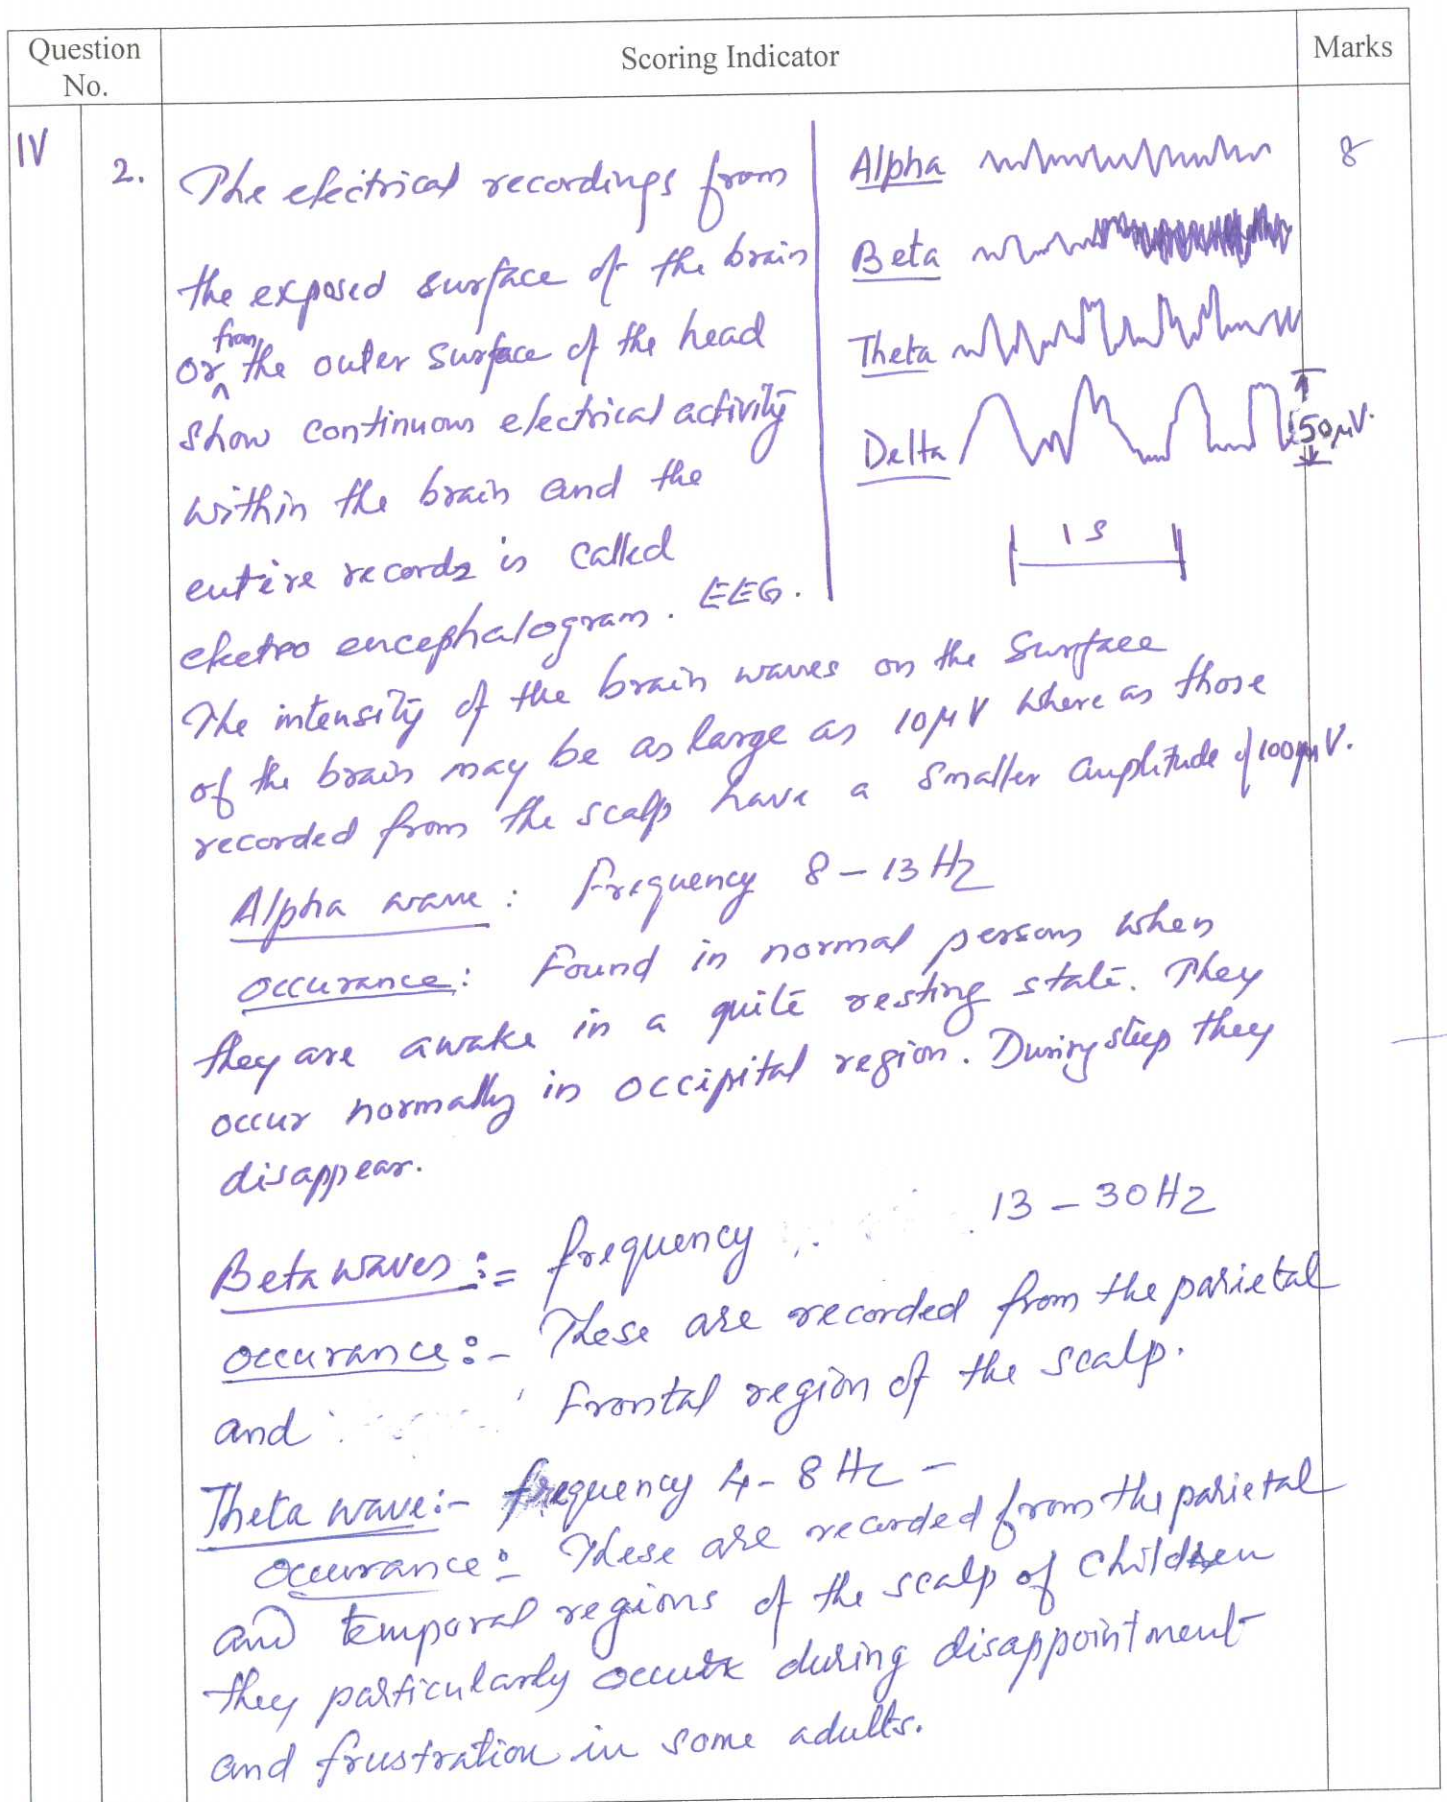 Question No.
Scoring Indicator
Marks
IV
2.
8
The electrical recordings from
the exposed surface of the brain
or from the outer surface of the head
show continuous electrical activity
within the brain and the
entire records is called
electro encephalogram. EEG.
Alpha
Beta
Theta
Delta
50μV.
1 S
The intensity of the brain waves on the surface
of the brain may be as large as 10μV where as those
recorded from the scalp have a smaller amplitude of 100μV.
Alpha wave : frequency 8 – 13 Hz
occurance : Found in normal persons when
they are awake in a quite resting state. They
occur normally in occipital region. During sleep they
disappear.
Beta waves := frequency 13 – 30 Hz
occurance :- These are recorded from the parietal
and Frontal region of the scalp.
Theta wave :- frequency 4 - 8 Hz –
occurance : These are recorded from the parietal
and temporal regions of the scalp of children
they particularly occur during disappointment
and frustration in some adults.